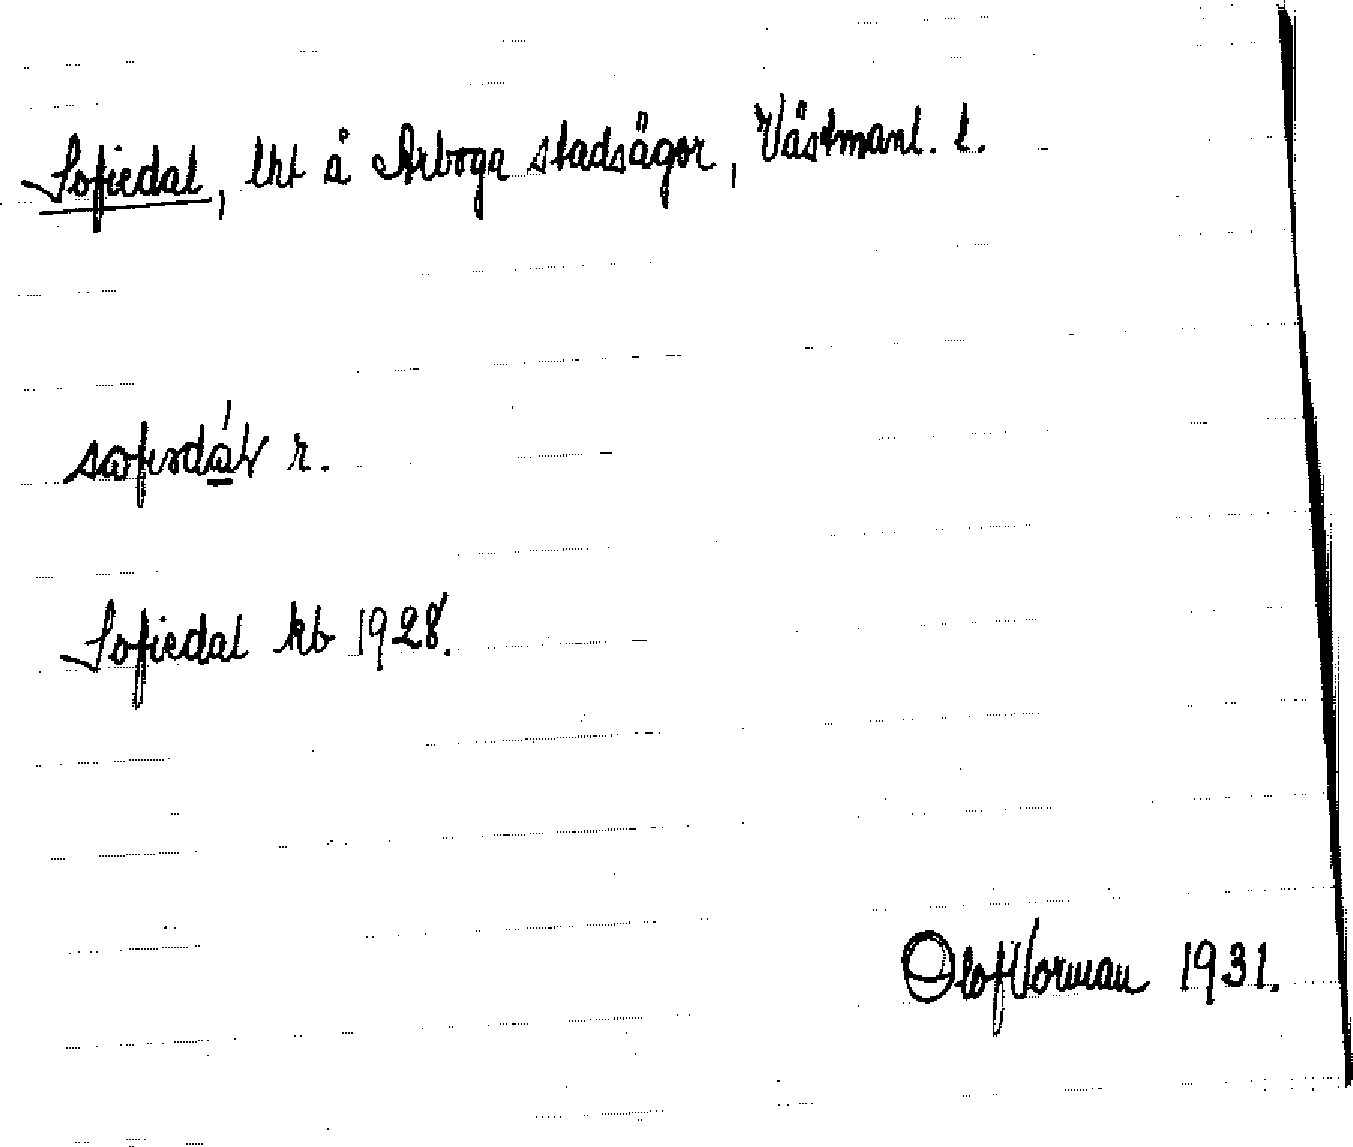 Sofiedal, lht å Arboga stadsägor, Västmanl. l.
r.
Sofiedal kb 1928.
Olof Vorman 1931.